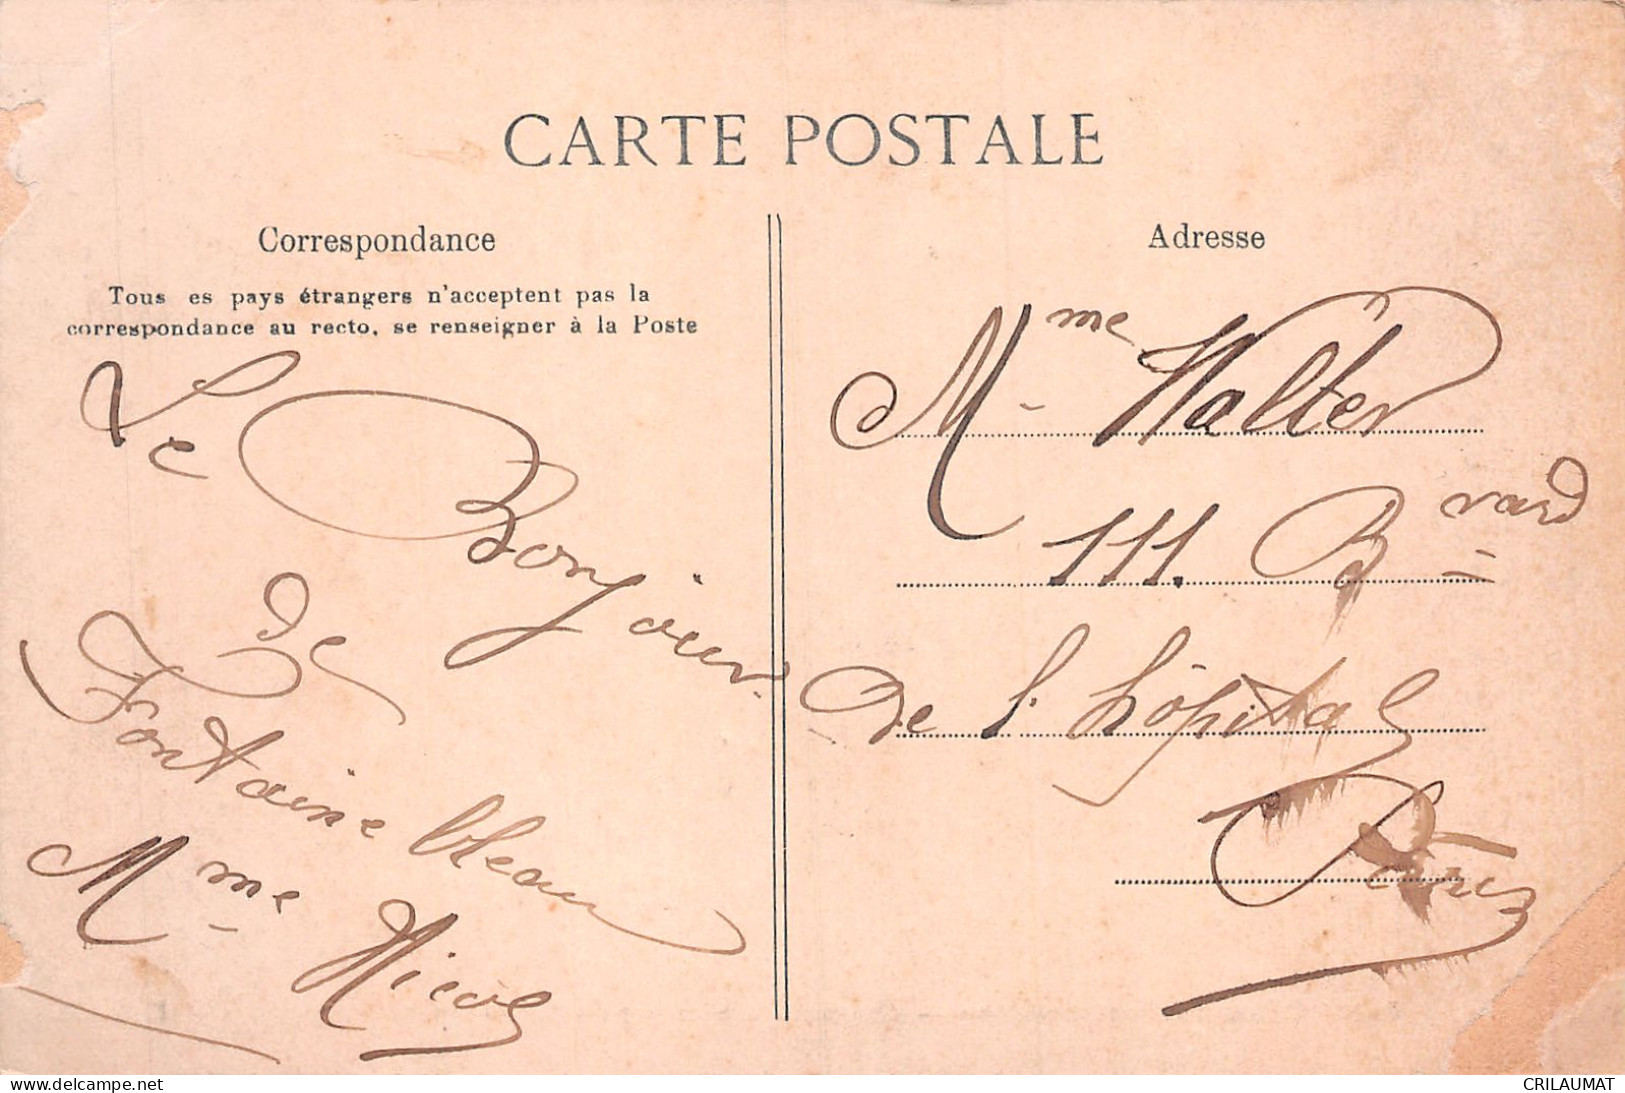 CARTE POSTALE
Correspondance
Tous es pays étrangers n'acceptent pas la
correspondance au recto, se renseigner à la Poste
Le Bonjour
de
Fontainebleau
Mme Nicol
Adresse
Mme Walter
111. Bvard
de l'hôpital
Paris
www.delcampe.net
CRILAUMAT